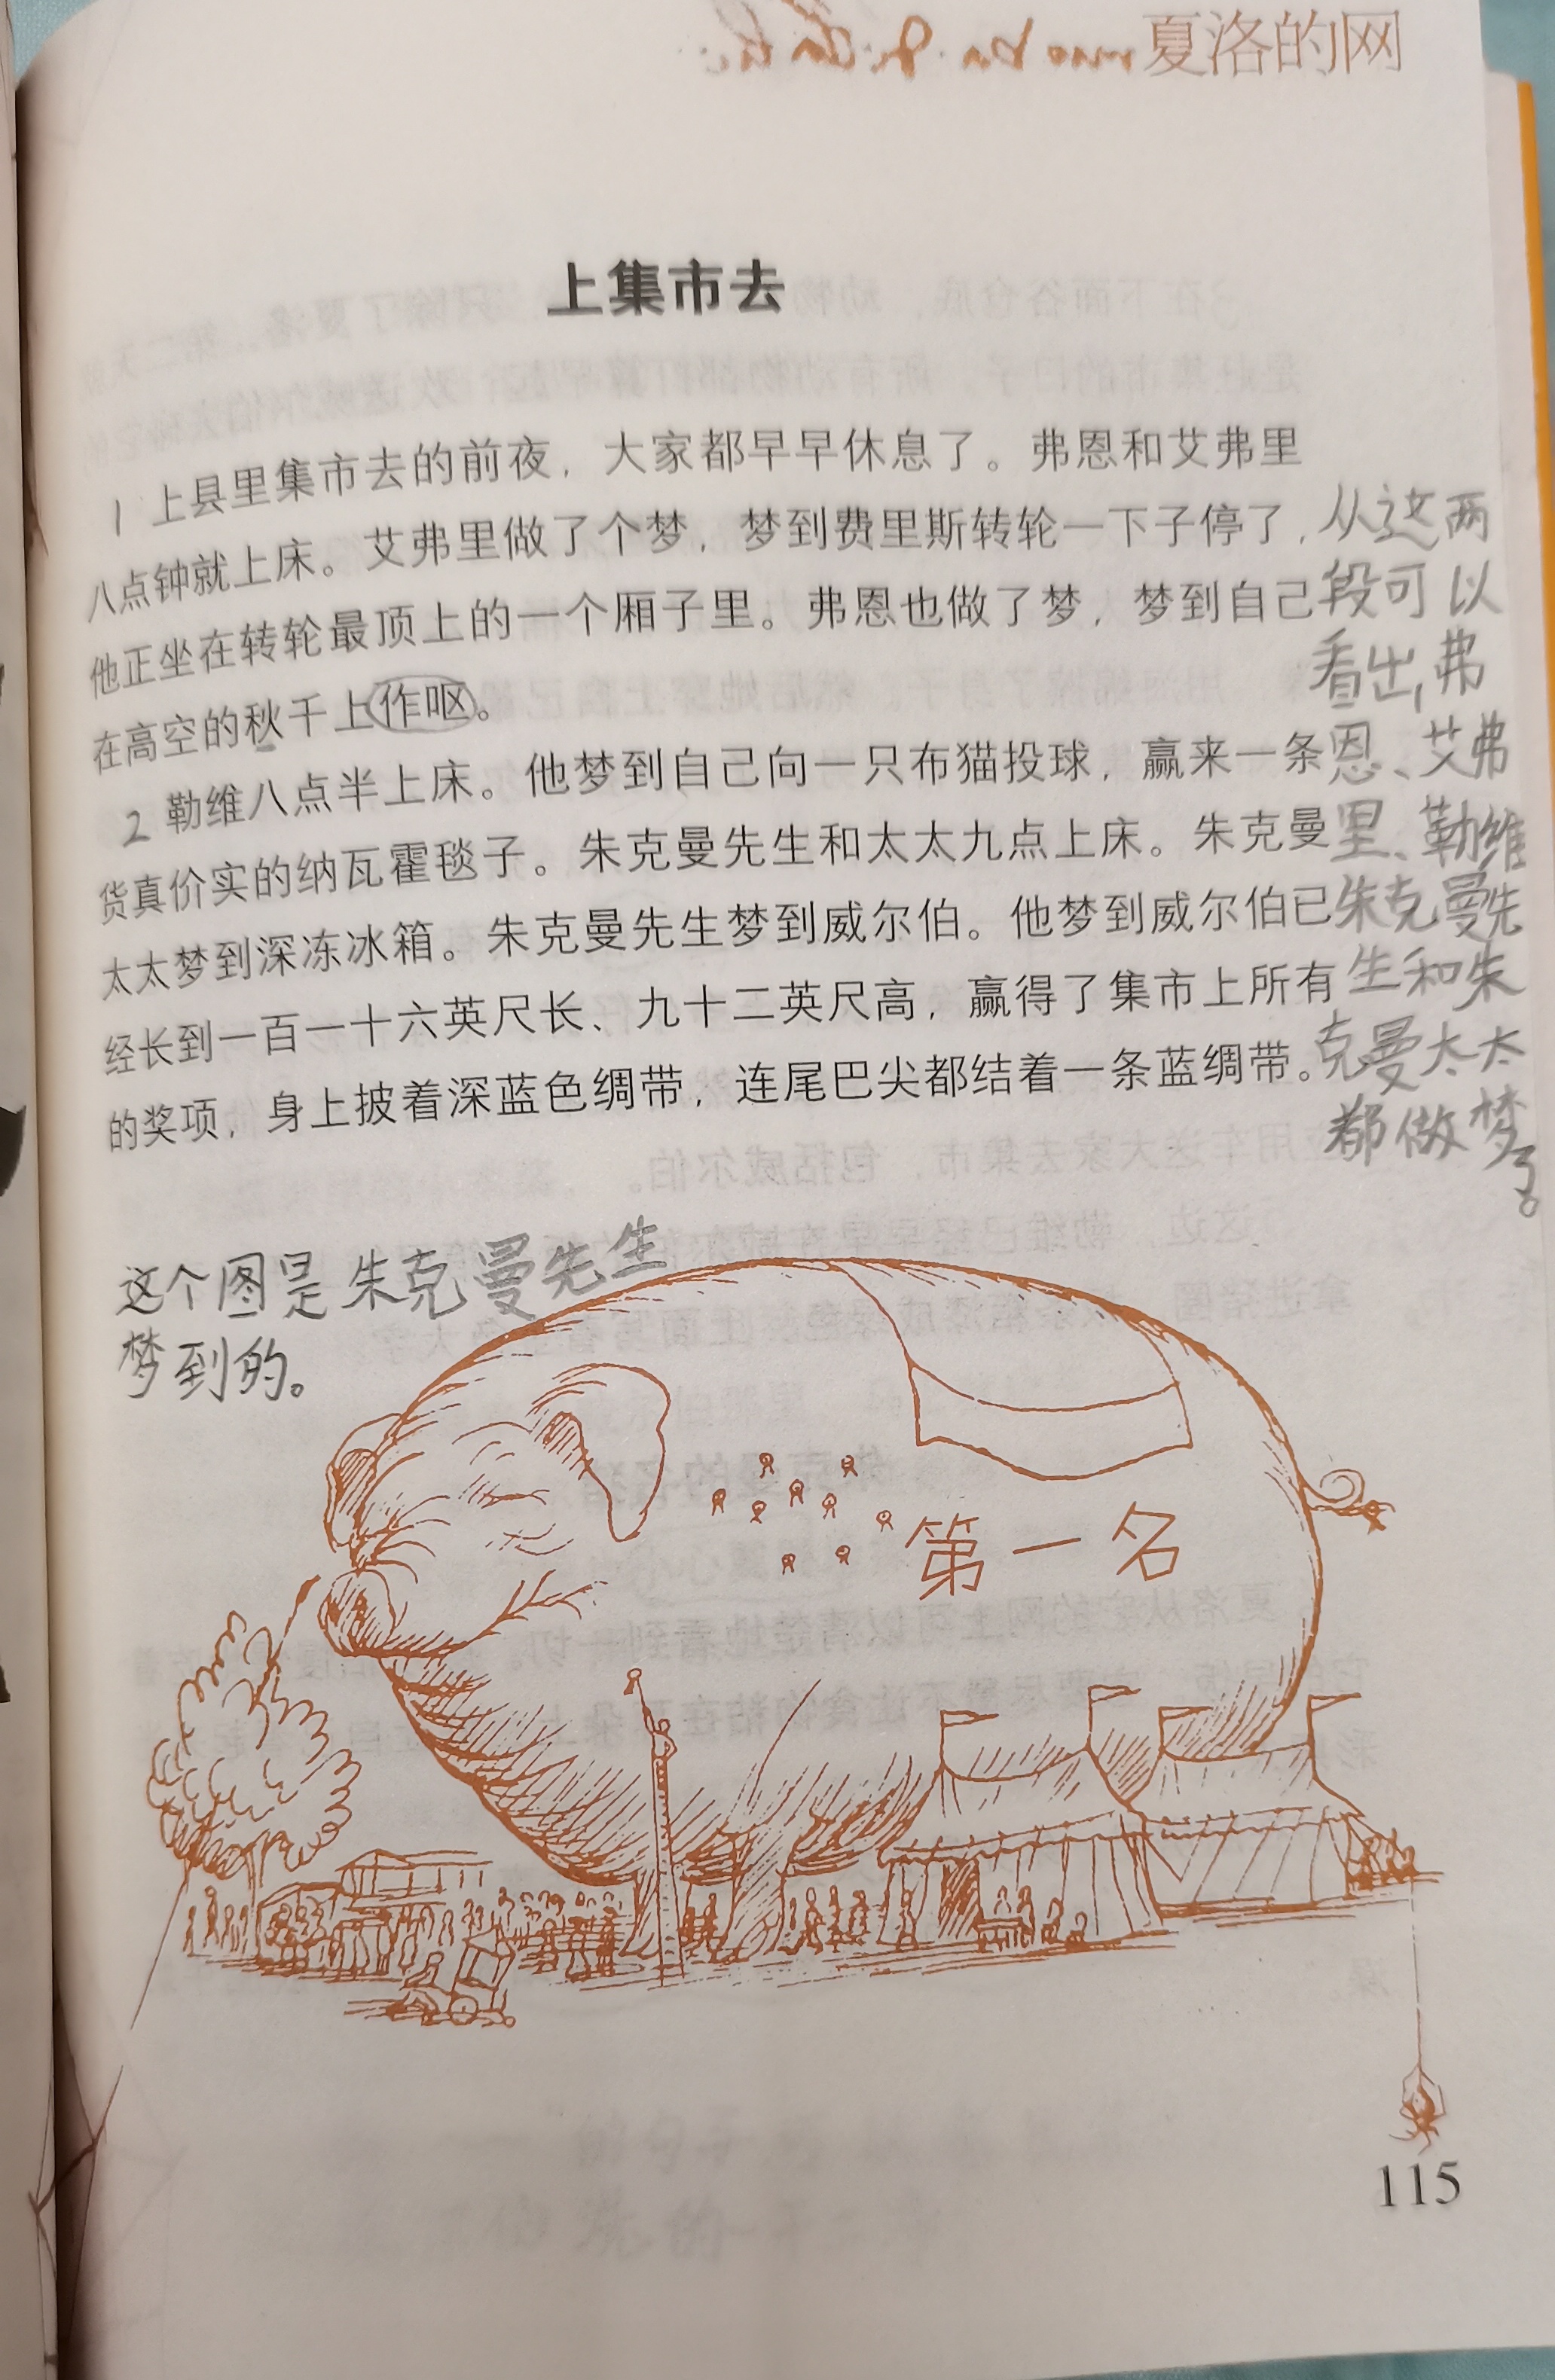 夏洛的网
上集市去
1 上县里集市去的前夜，大家都早早休息了。弗恩和艾弗里
八点钟就上床。艾弗里做了个梦，梦到费里斯转轮一下子停了，
他正坐在转轮最顶上的一个厢子里。弗恩也做了梦，梦到自己
在高空的秋千上作呕。
2 勒维八点半上床。他梦到自己向一只布猫投球，赢来一条
货真价实的纳瓦霍毯子。朱克曼先生和太太九点上床。朱克曼
太太梦到深冻冰箱。朱克曼先生梦到威尔伯。他梦到威尔伯已
经长到一百一十六英尺长、九十二英尺高，赢得了集市上所有
的奖项，身上披着深蓝色绸带，连尾巴尖都结着一条蓝绸带。
从这两
段可以
看出，弗
恩、艾弗
里、勒维
朱克曼先
生和朱
克曼太太
都做梦
了。
这个图是朱克曼先生
梦到的。
第一名
115